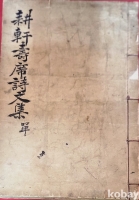 耕軒壽席詩文集 單
kobay